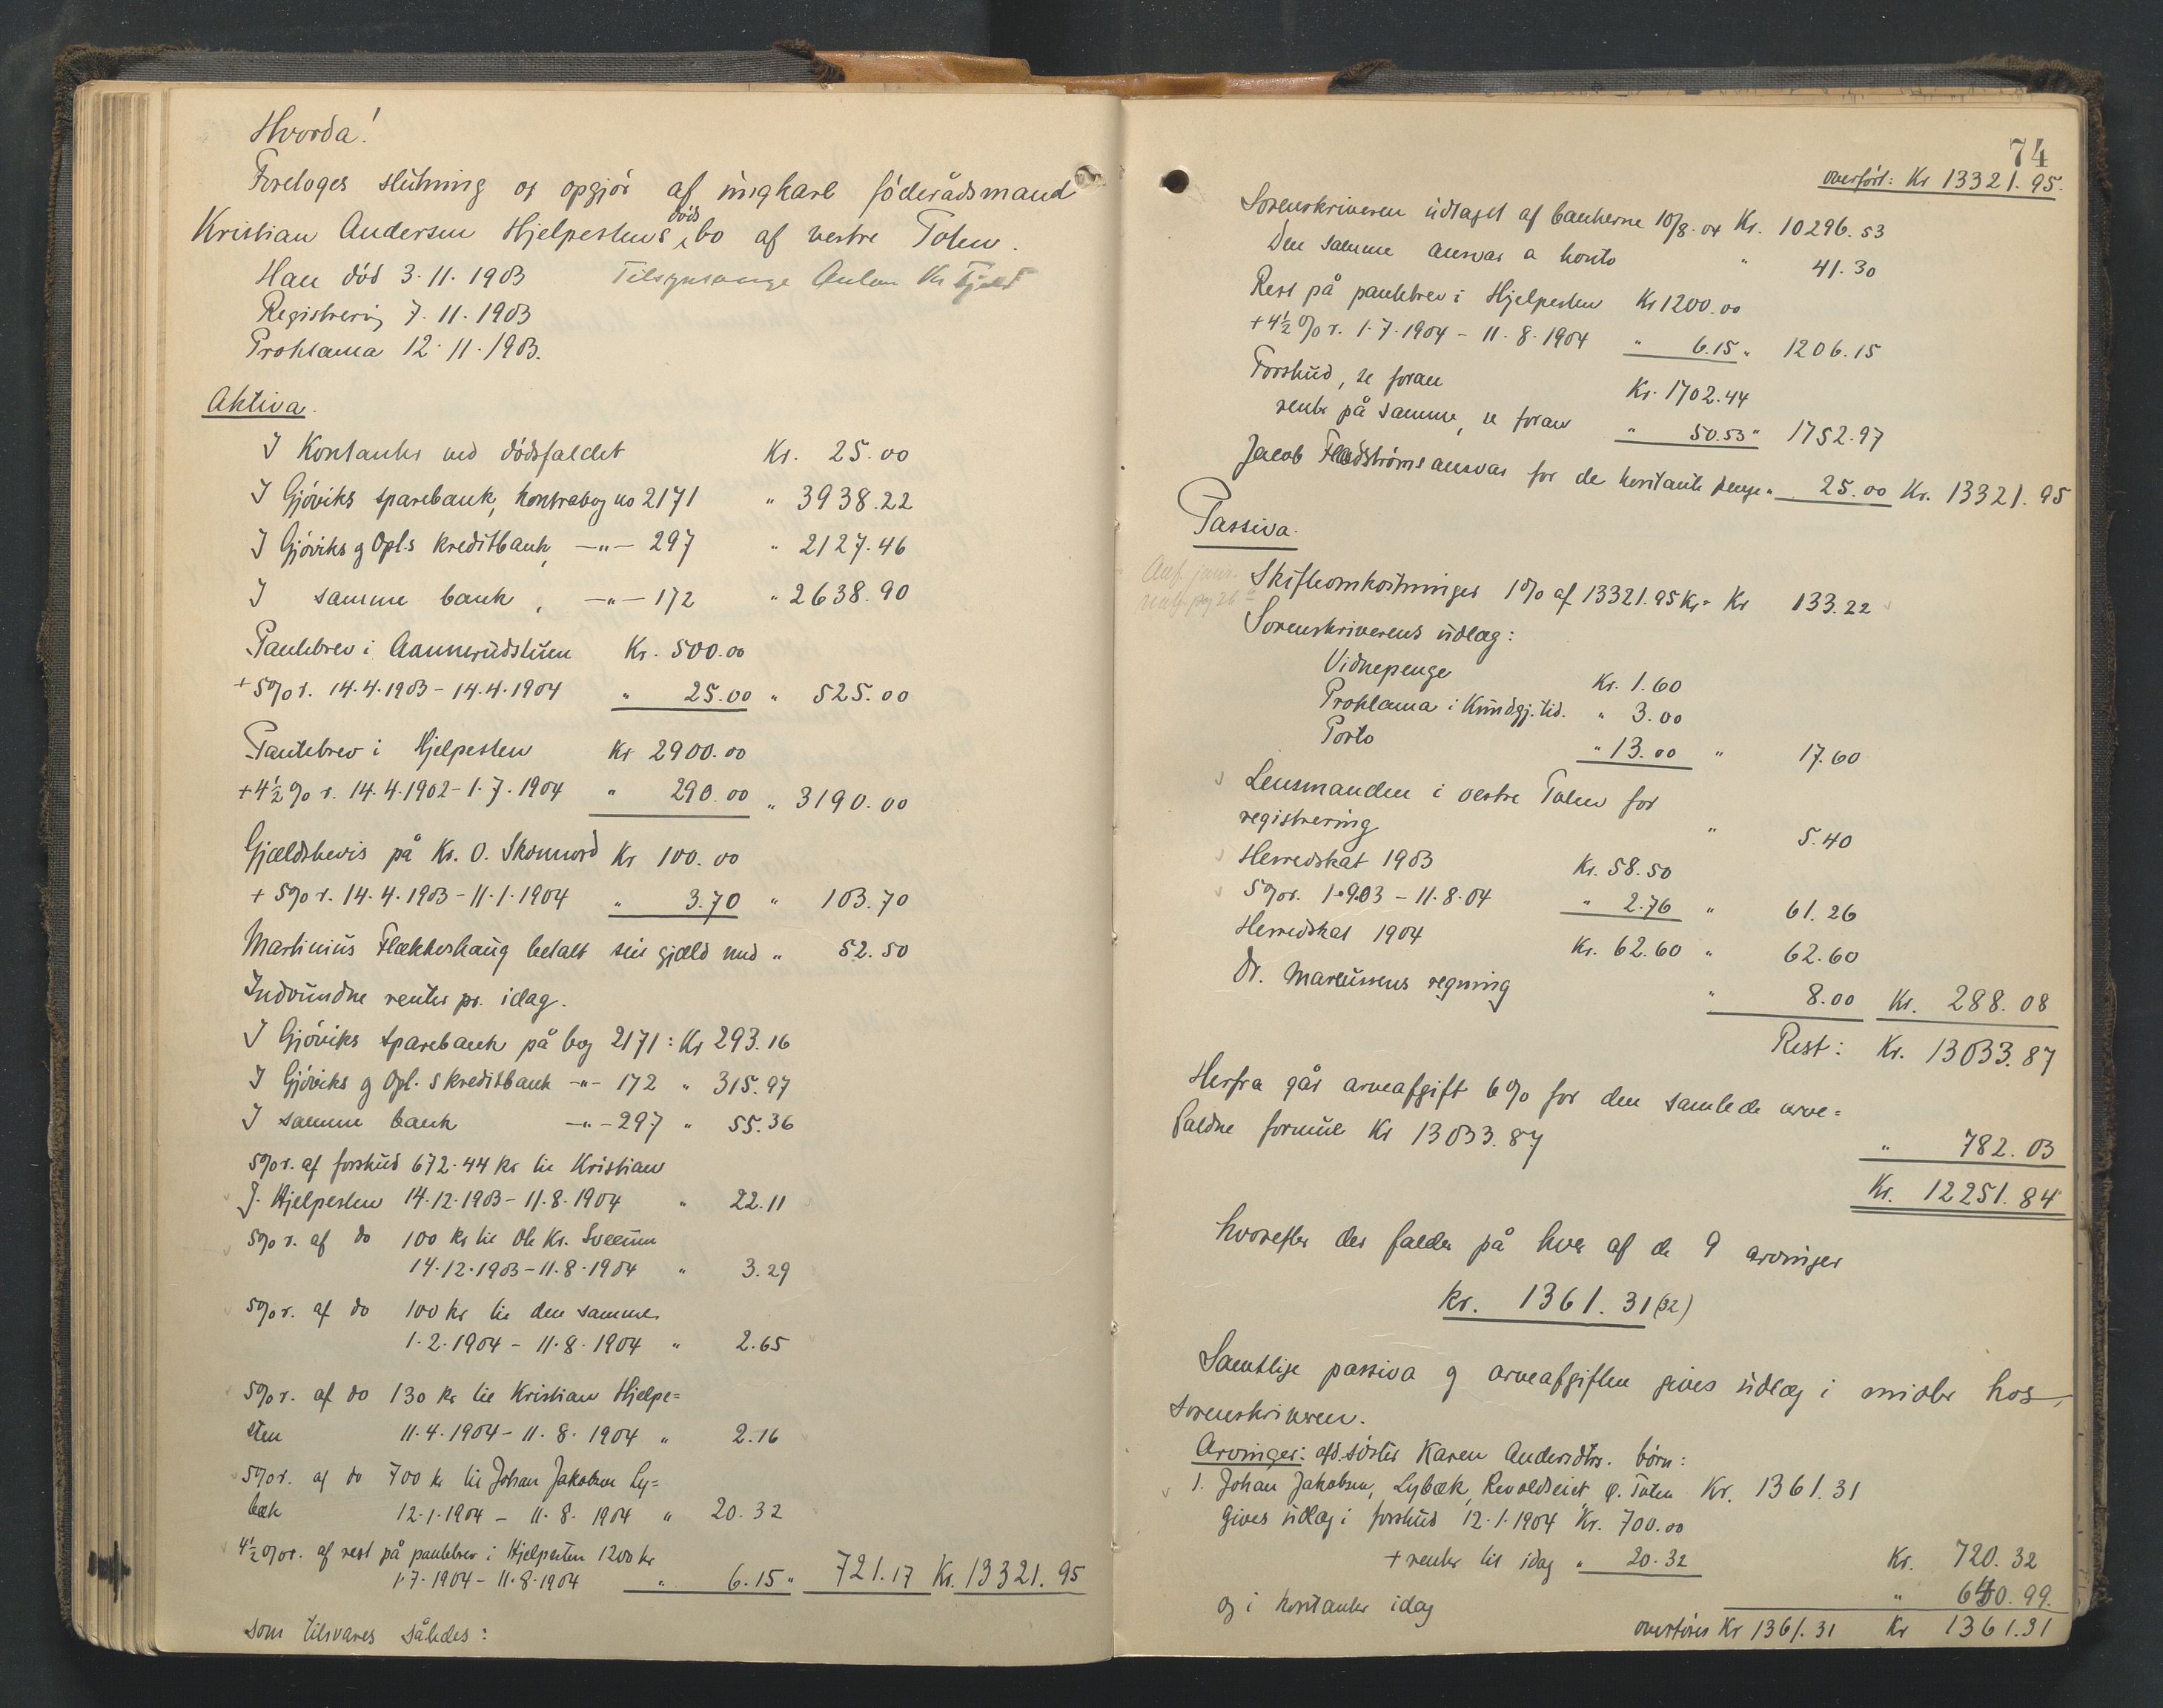 Hvorda!
Foretoges slutning og opgjör af ungkarl föderådsmand
Kristian Andersen Hjelpestens döds bo af vestre Toten.
Han död 3.11.1903 Tilsynsværge Anton Kr
Registrering 7.11.1903
Proklama 12.11.1903.
Aktiva.
I Kontanter ved dödsfaldet Kr. 25.00
I Gjöviks sparebank, kontrabog no 2171 " 3938.22
I Gjöviks og Opl.s kreditbank, —"— 297 " 2127.46
I samme bank, —"— 172 " 2638.90
Pantebrev i Aannerudstuen Kr. 500.00
+ 5% r. 14.4.1903 - 14.4.1904 " 25.00 " 525.00
Pantebrev i Hjelpesten Kr 2900.00
+ 4½% r. 14.4.1902 - 1.7.1904 " 290.00 " 3190.00
Gjældsbevis på Kr. O. Skonnord Kr 100.00
+ 5% r. 14.4.1903 - 11.1.1904 " 3.70 " 103.70
Martinius Flækkeshaug betalt sin gjæld med " 52.50
Indvundne renter pr. idag.
I Gjöviks sparebank på bog 2171: Kr 293.16
I Gjöviks og Opl.s kreditbank -"- 172 " 315.97
I samme bank —"— 297 " 55.36
5% r. af forskud 672.44 kr til Kristian
J. Hjelpesten 14.12.1903 - 11.8.1904 " 22.11
5% r. af do 100 kr til Ole Kr. Sveeum
14.12.1903 - 11.8.1904 " 3.29
5% r. af do 100 kr til den samme
1.2.1904 - 11.8.1904 " 2.65
5% r. af do 130 kr til Kristian Hjelpe=
sten 11.4.1904 - 11.8.1904 " 2.16
5% r. af do 700 kr til Johan Jakobsen Ly=
bæk 12.1.1904 - 11.8.1904 " 20.32
4½% r. af rest på pantebrev i Hjelpesten 1200 kr
1.7.1904 - 11.8.1904 " 6.15 " 721.17 Kr. 13321.95
som tilsvares således:
74
overfört: Kr 13321.95.
Sorenskriveren udtaget af bankerne 10/8.04 Kr. 10296.53
Den samme ansvar a konto " 41.30
Rest på pantebrev i Hjelpesten Kr 1200.00
+ 4½% r. 1.7.1904 - 11.8.1904 " 6.15 " 1206.15
Forskud, se foran Kr. 1702.44
renter på samme, se foran " 50.53 " 1752.97
Jacob Fladströms ansvar for de kontante penge " 25.00 Kr. 13321.95
Passiva.
Skifteomkostninger 1% af 13321.95 Kr = Kr 133.22
Sorenskriverens udlæg:
Vidnepenge Kr. 1.60
Proklama i Kundgj. tid. " 3.00
Porto " 13.00 " 17.60
Lensmanden i vestre Toten for
registrering " 5.40
Herredskat 1903 Kr. 58.50
5% r. 1.9.03 - 11.8.04 " 2.76 " 61.26
Herredskat 1904 Kr. 62.60 " 62.60
Dr. Marcussens regning " 8.00 Kr. 288.08
Rest: Kr. 13033.87
Herfra går arveafgift 6% for den samlede arve=
faldne formue Kr 13033.87 " 782.03
Kr. 12251.84
hvorefter der falder på hver af de 9 arvinger
Kr. 1361.31 (32)
Samtlige passiva og arveafgiften gives udlæg i midler hos
sorenskriveren.
Arvinger: afd. söster Karen Andersdtrs. börn:
1. Johan Jakobsen, Lybæk, Ø. Toten Kr. 1361.31
gives udlæg i forskud 12.1.1904 Kr. 700.00
+ renter til idag " 20.32 Kr. 720.32
og i kontanter idag " 640.99.
overföres Kr 1361.31 Kr 1361.31